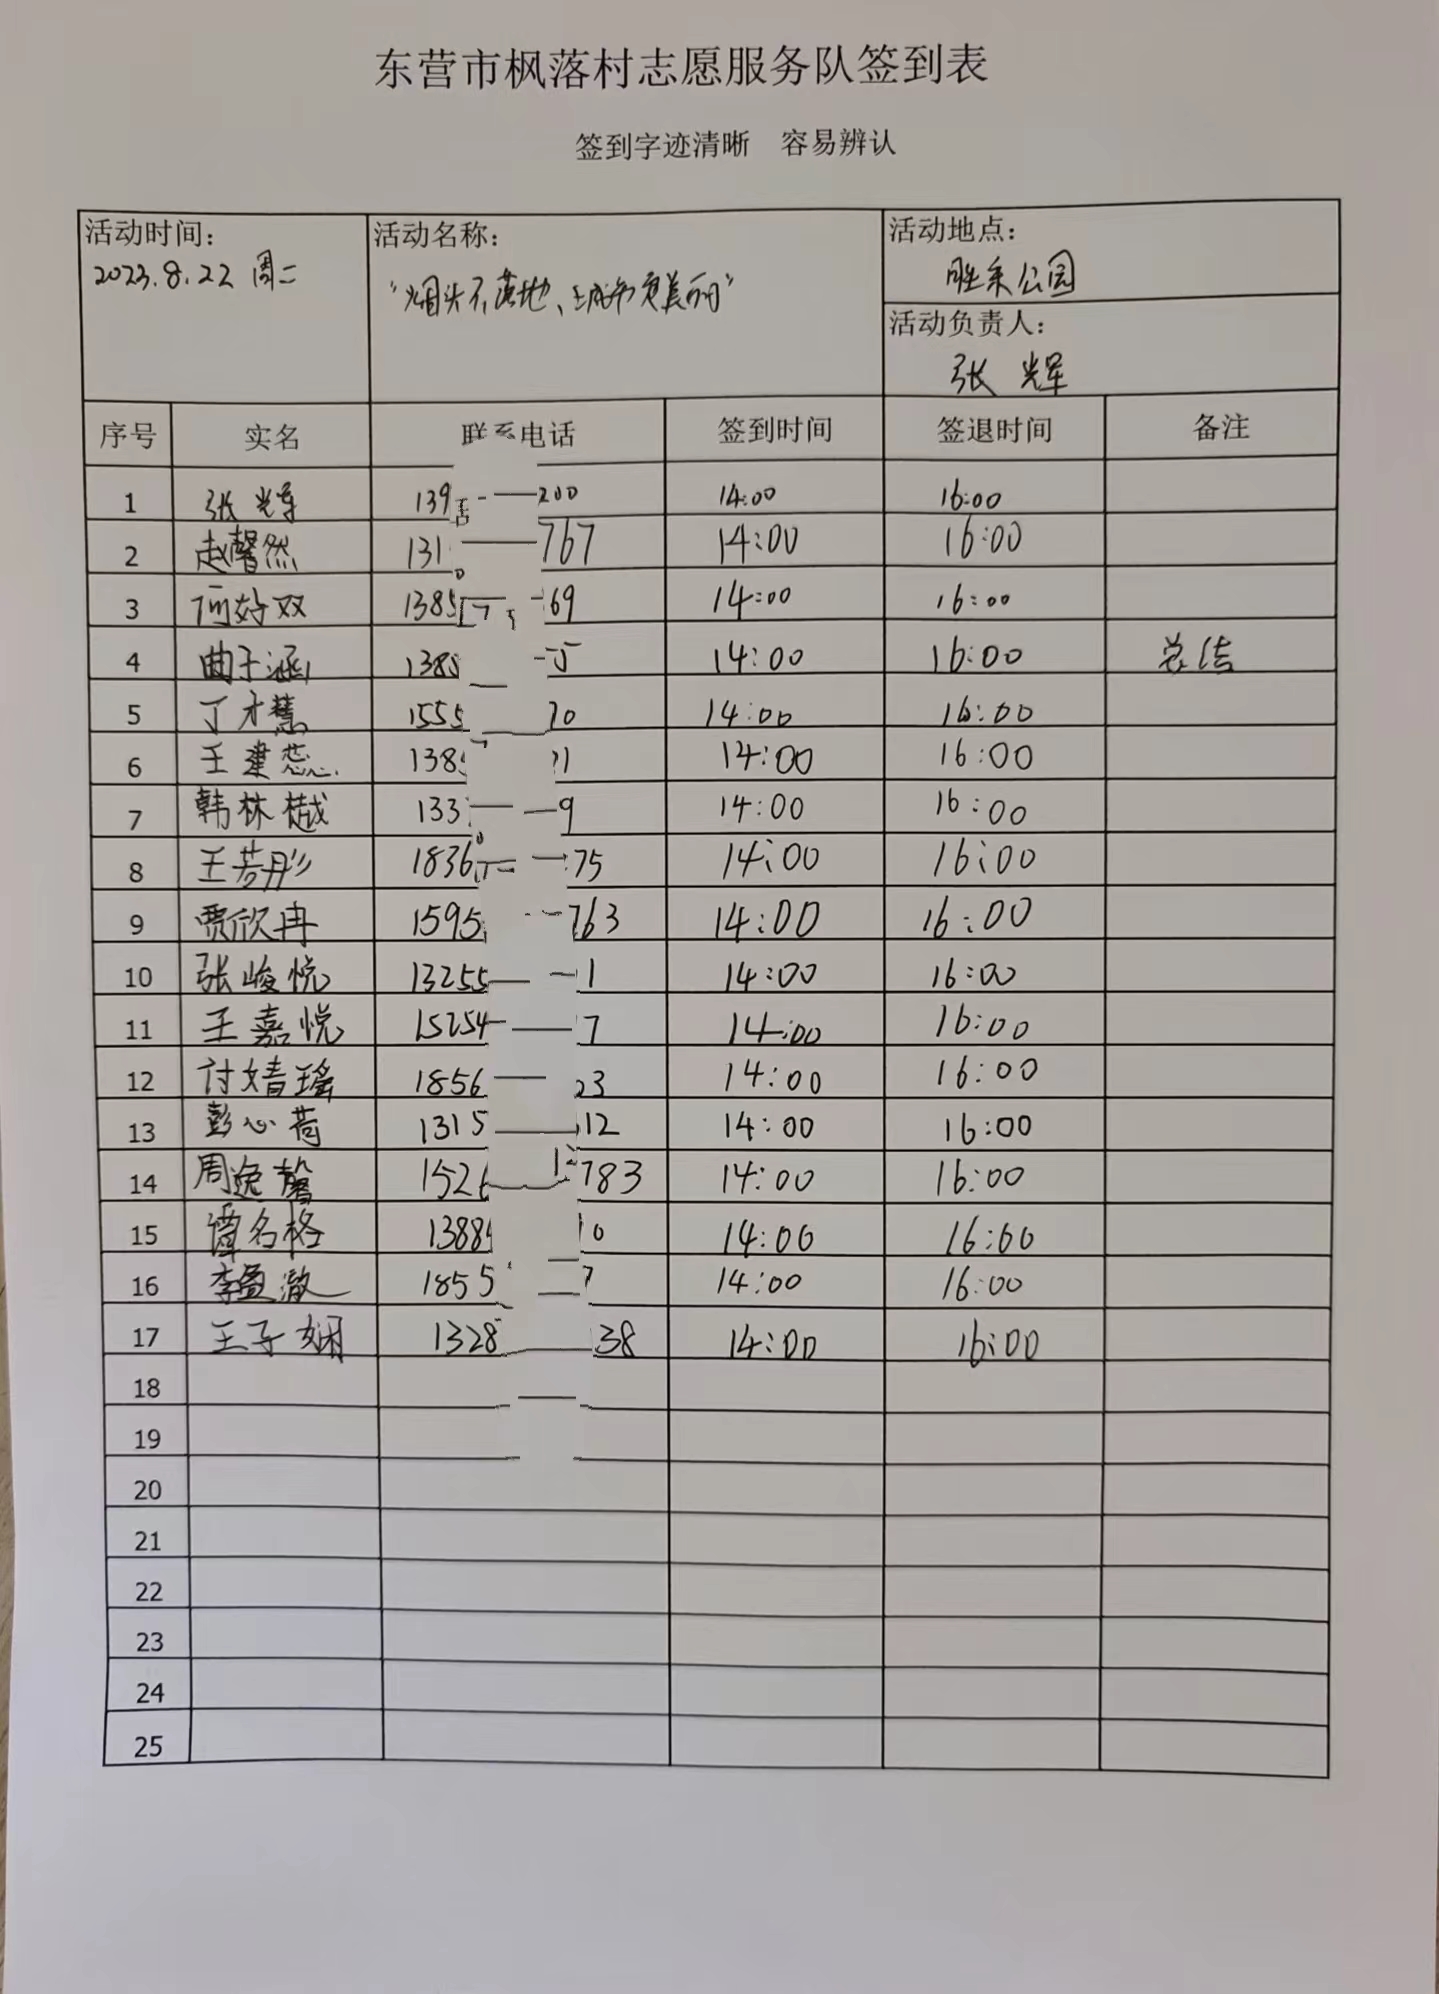 东营市枫落村志愿服务队签到表
签到字迹清晰 容易辨认
活动时间：
2023.8.22 周二
活动名称：
“烟头不落地、城市更美丽”
活动地点：
胜采公园
活动负责人：
张 辉
序号 实名 联系电话 签到时间 签退时间 备注
1 张辉 139 200 14:00 16:00
2 赵馨然 131 767 14:00 16:00
3 何好双 1385 69 14:00 16:00
4 曲子涵 138 14:00 16:00 总结
5 丁才慧 1555 70 14:00 16:00
6 王建蕊 138 1 14:00 16:00
7 韩林樾 133 9 14:00 16:00
8 王芳彤 1836 75 14:00 16:00
9 贾欣冉 1595 763 14:00 16:00
10 张峻悦 13255 1 14:00 16:00
11 王嘉悦 15254 7 14:00 16:00
12 付婧瑶 1856 23 14:00 16:00
13 彭心荷 1315 12 14:00 16:00
14 周逸馨 152 783 14:00 16:00
15 谭名格 1388 0 14:00 16:00
16 李盈澈 1855 7 14:00 16:00
17 王子娴 1328 38 14:00 16:00
18
19
20
21
22
23
24
25